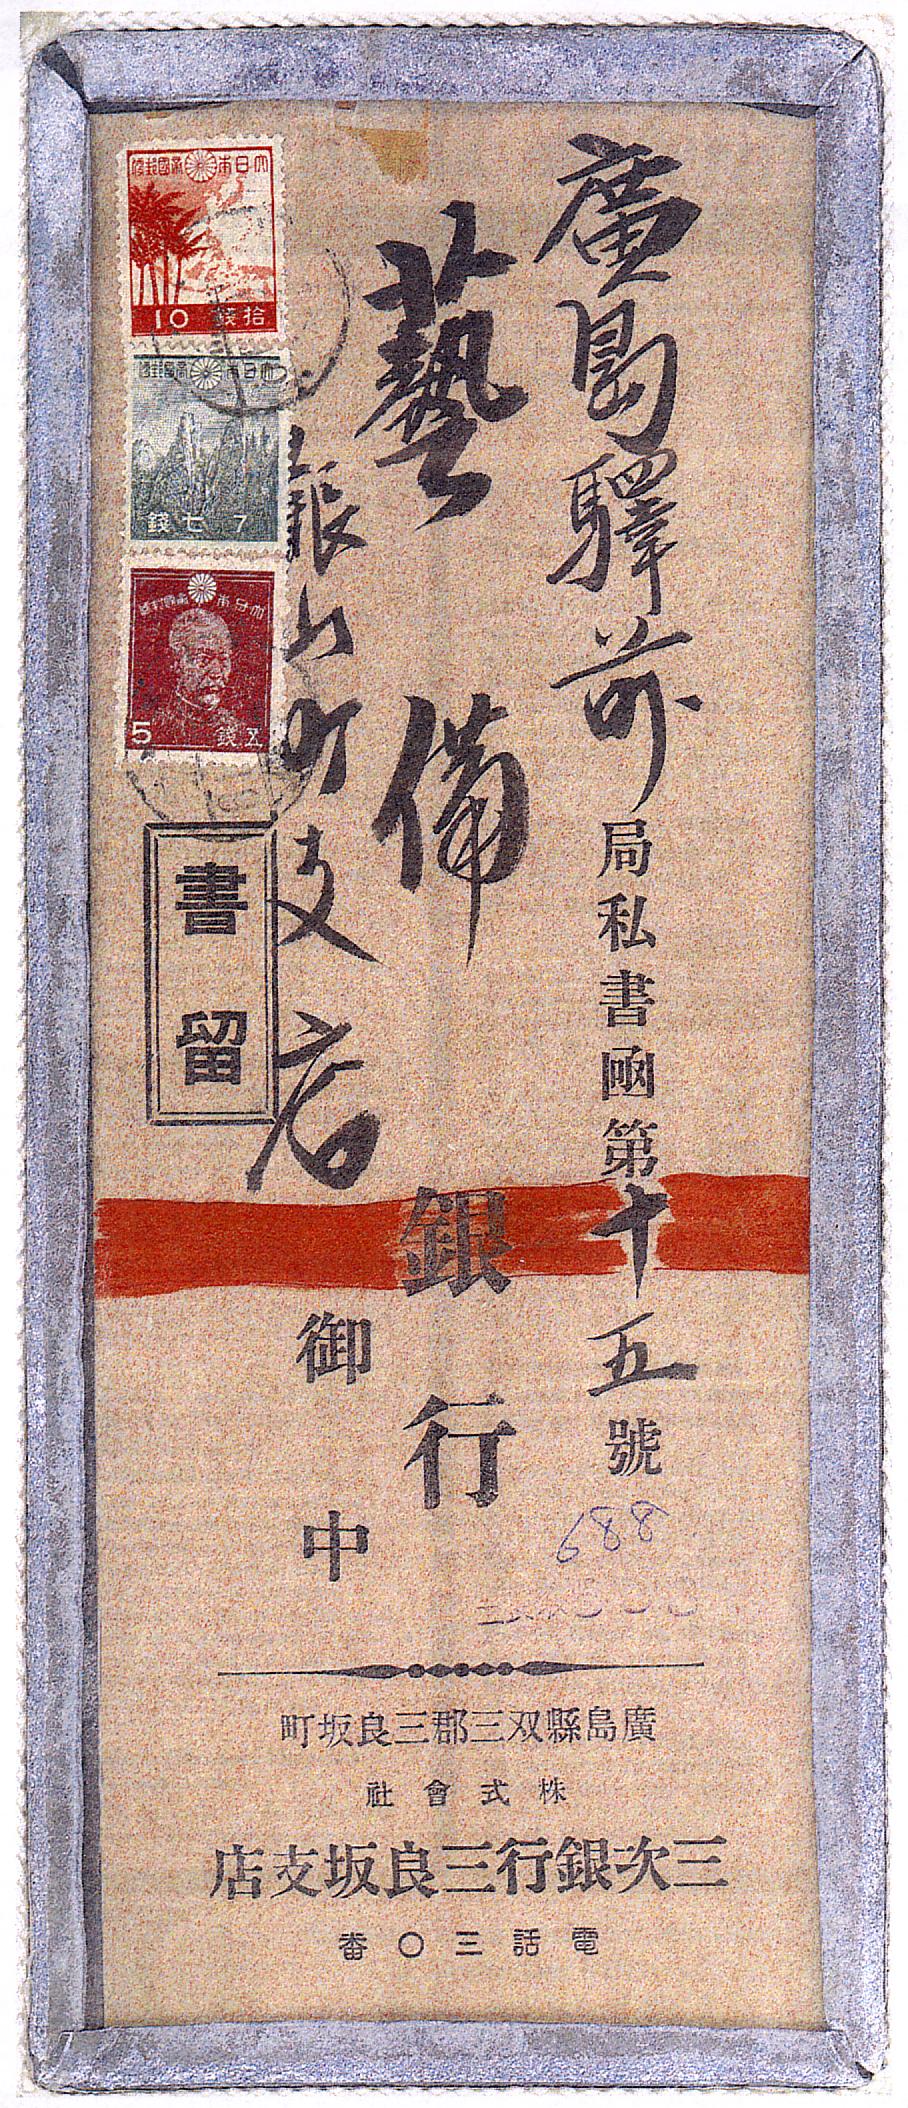 廣島驛前局私書凾第十五號
藝備銀行
銀山町支店御中
大日本帝國郵便
10 拾錢
大日本帝國郵便
7 七錢
大日本帝國郵便
5 五錢
書留
688
廣島縣双三郡三良坂町
株式會社
三次銀行三良坂支店
電話三〇番